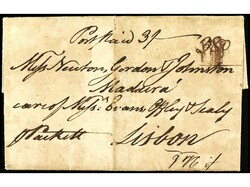 Post Paid 3/
Messrs Newton, Gordon & Johnston
Madeira
care of Messrs Evans Offley & Sealy
P Packett
Lisbon